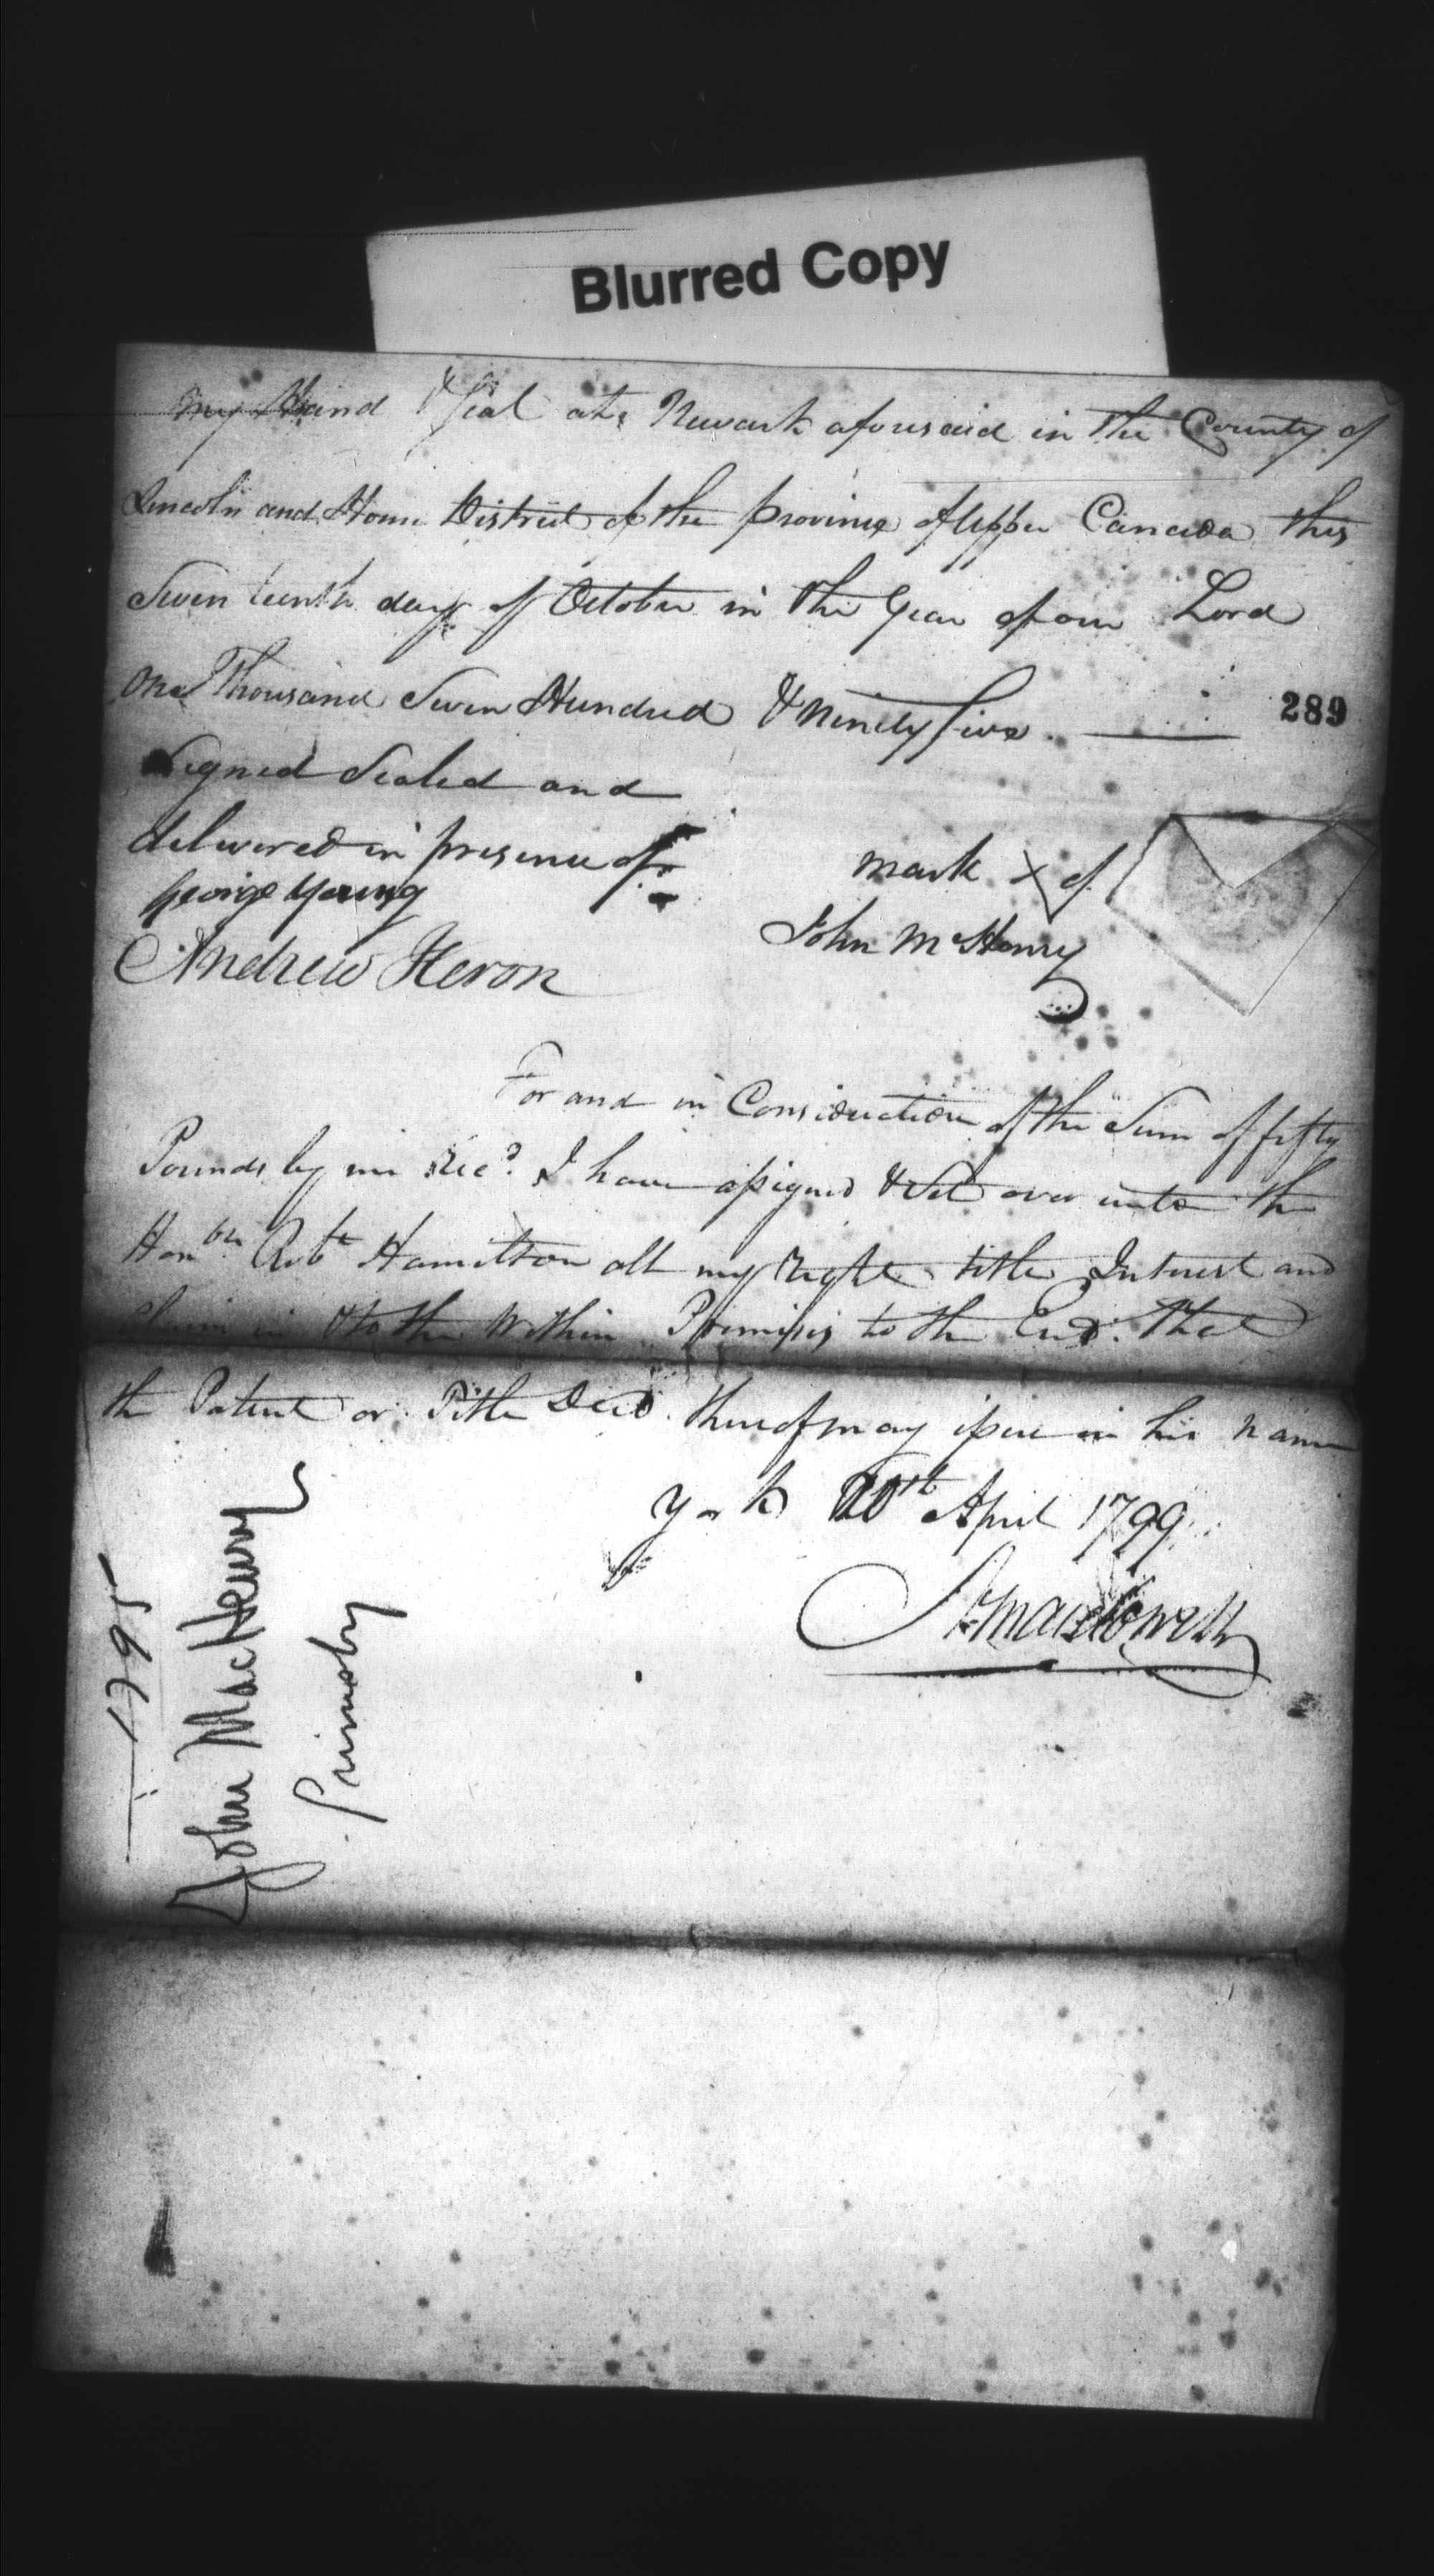 Blurred Copy
my Hand & Seal at Newark aforesaid in the County of
Lincoln and Home District of the province of Upper Canada this
Seventeenth day of October in the Year of our Lord
One Thousand Seven Hundred & Ninety five
289
Signed Sealed and
delivered in presence of
George Young
Andrew Heron
mark X of
John McHenry
For and in Consideration of the Sum of fifty
Pounds by me Recd. I have assigned & Set over unto the
Honble Robt Hamilton all my right title Interest and
Claim in & to the Within Premises to the End that
the Patent or Title Deed thereof may issue in his name
York 20th April 1799
1795
John MacHenry
Grimsby